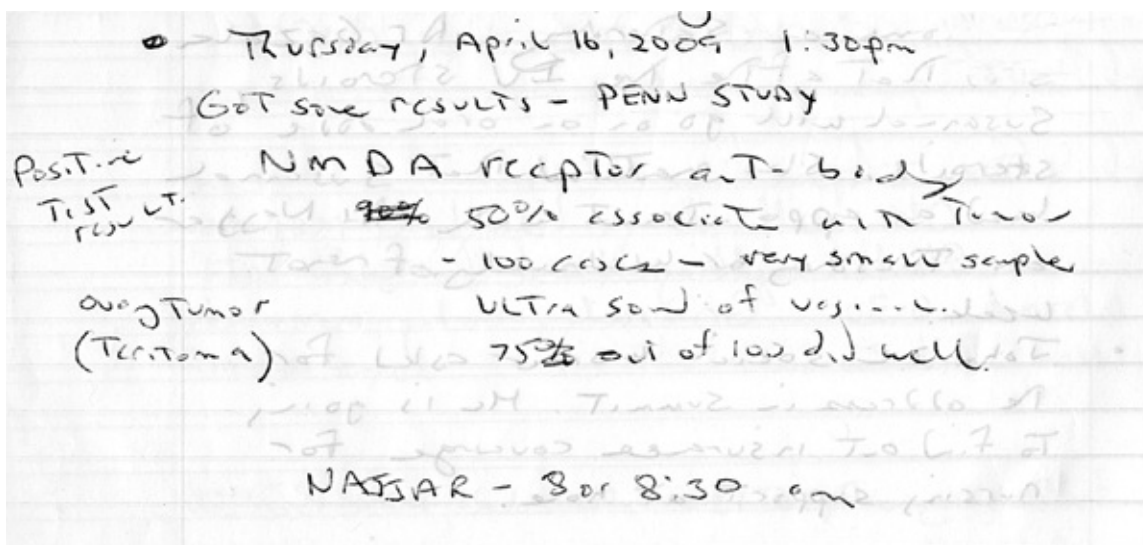 • Thursday, April 16, 2009 1:30pm
GOT some results - PENN STUDY
Positive
Test
result
NMDA receptor anti-body
90% 50% associate with Tumor
- 100 cases - very small sample
ovary Tumor
(Teritoma)
ULTRA sound of
75% out of 100 did well
NAJJAR - 8 or 8:30 am